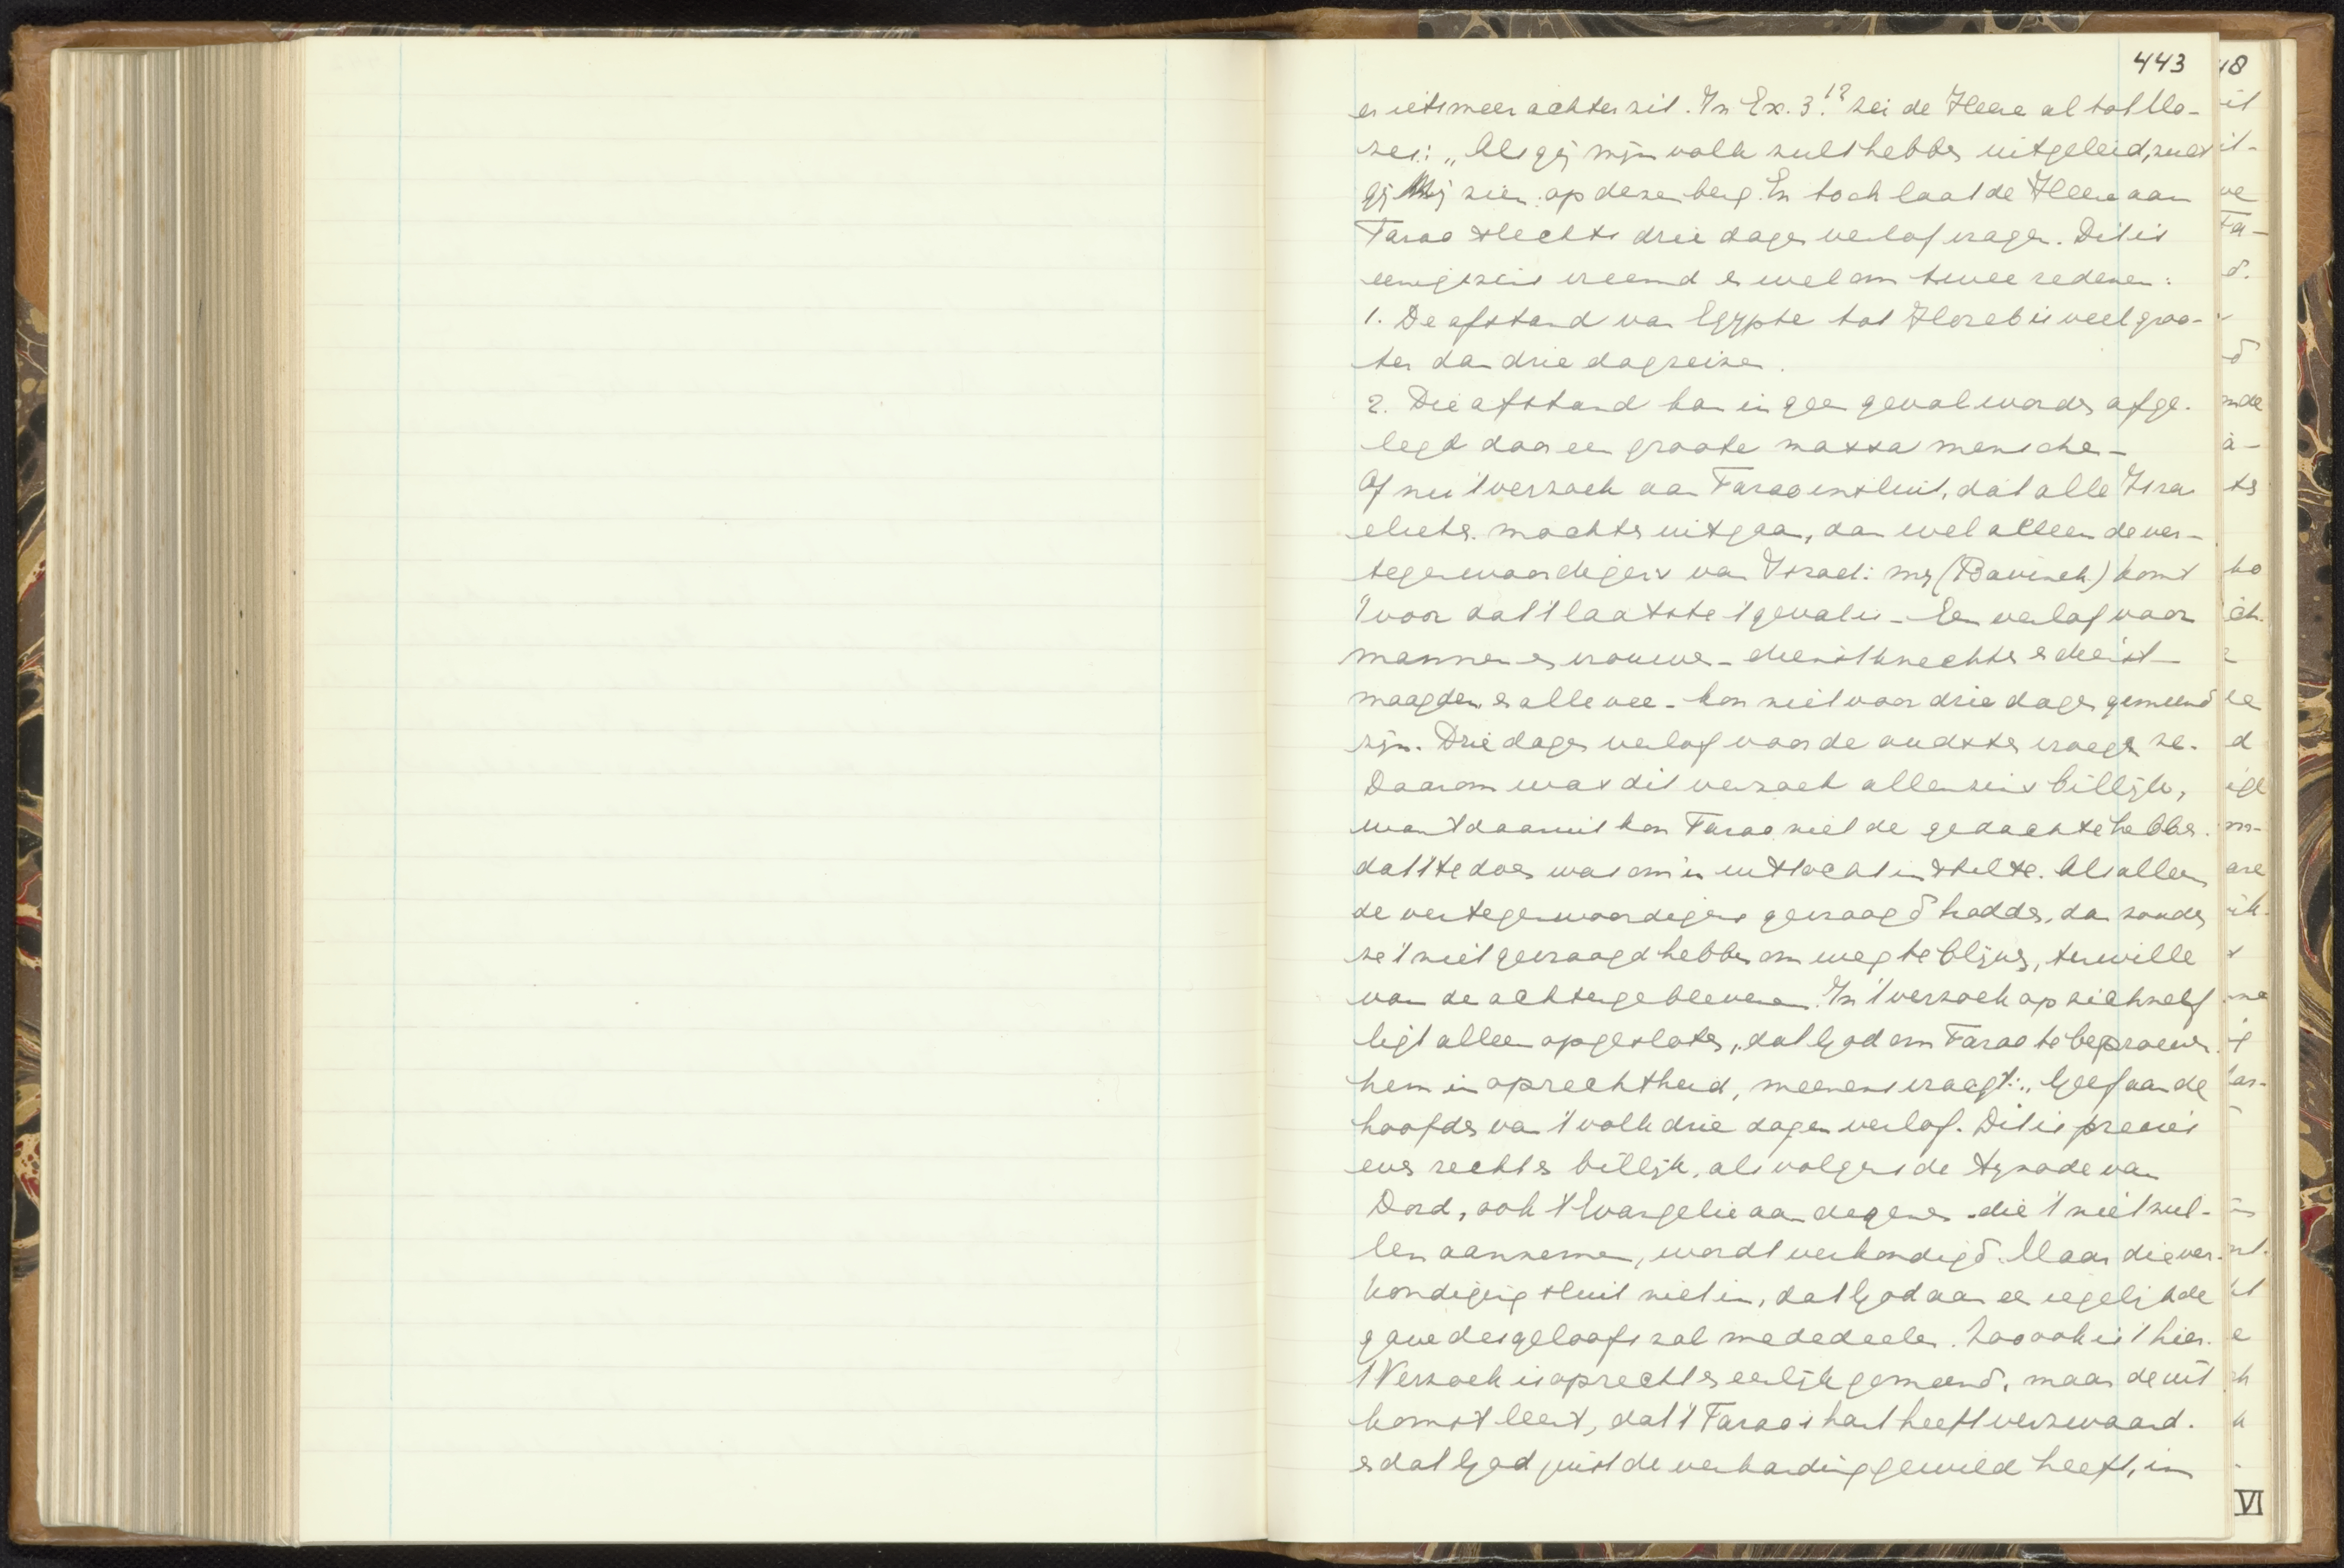 443
er iets meer achter zit. In Ex. 3:12 zei de Heere al tot Mo-
zes: „Als gij mijn volk zult hebben uitgeleid, zult
gij Mij zien op dezen berg. En toch laat de Heere aan
Farao slechts drie dagen verlof vragen. Dit is
eenigszins vreemd en wel om twee redenen:
1. De afstand van Egypte tot Horeb is veel groo-
ter dan drie dagreizen.
2. Die afstand kan in geen geval worden afge-
legd door een groote massa menschen -
Of nu 't verzoek aan Farao insluit, dat alle Isra
elieten mochten uitgaan, dan wel alleen de ver-
tegenwoordigers van Israel: mij (Bavinck) komt
't voor dat 't laatste 't geval is - Een verlof voor
mannen en vrouwen - dienstknechten en dienst-
maagden en alle vee - kon niet voor drie dagen gemeend
zijn. Drie dagen verlof voor de oudsten vroegen ze.
Daarom was dit verzoek allenszins billijk,
want daaruit kon Farao niet de gedachte hebben
dat 't te doen was om in uittocht in te stellen. Als alleen
de vertegenwoordigers gevraagd hadden, dan zouden
ze 't niet gevraagd hebben om weg te blijven, ter wille
van de achtergeblevenen. In 't verzoek op zichzelf
ligt alleen opgesloten, dat God om Farao te beproeven
hem in oprechtheid, meenens vraagt: „Geef aan de
hoofden van 't volk drie dagen verlof. Dit is precies
even recht en billijk, als volgens de synode van
Dord, ook 't Evangelie aan degenen die 't niet zul-
len aannemen, wordt verkondigd. Maar die ver-
kondiging sluit niet in, dat God aan een iegelijk de
gave des geloofs zal mededeelen. Zoo ook is 't hier.
't Verzoek is oprecht en eerlijk gemeend, maar de uit
komst leert, dat 't Farao's hart heeft verzwaard.
en dat God juist de verharding gewild heeft, in
VI